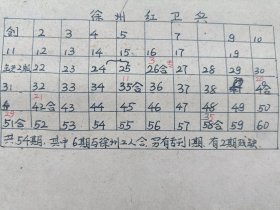 徐州红卫兵
创 2 3 4 5 7 9 10
11 12 13 14 15 16 17 19
22 23 24 25 26合 27 28 29 30
31 32 33 34 35合 36 37 38 合
42合 43 44 45 46 47 48 49 50
51合 52 53 54 55 56 57 58合 59 60
共54期. 其中6期与徐州工人合, 另有专刊1期. 有2期残缺